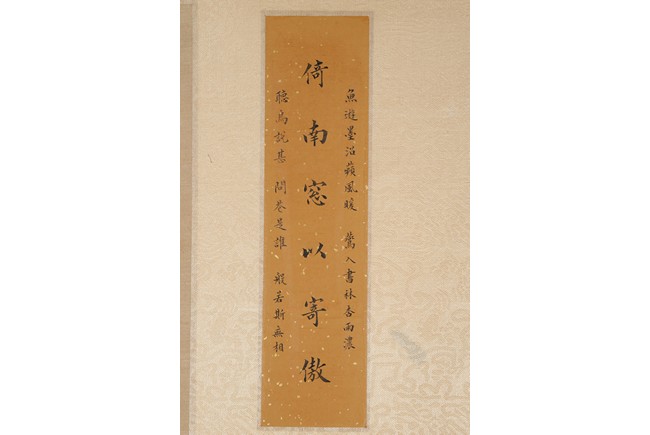 魚遊墨沼蘋風暖 鶯入書林杏雨濃
倚南窓以寄傲
聽鳥說甚 問花是誰 般若斯無相